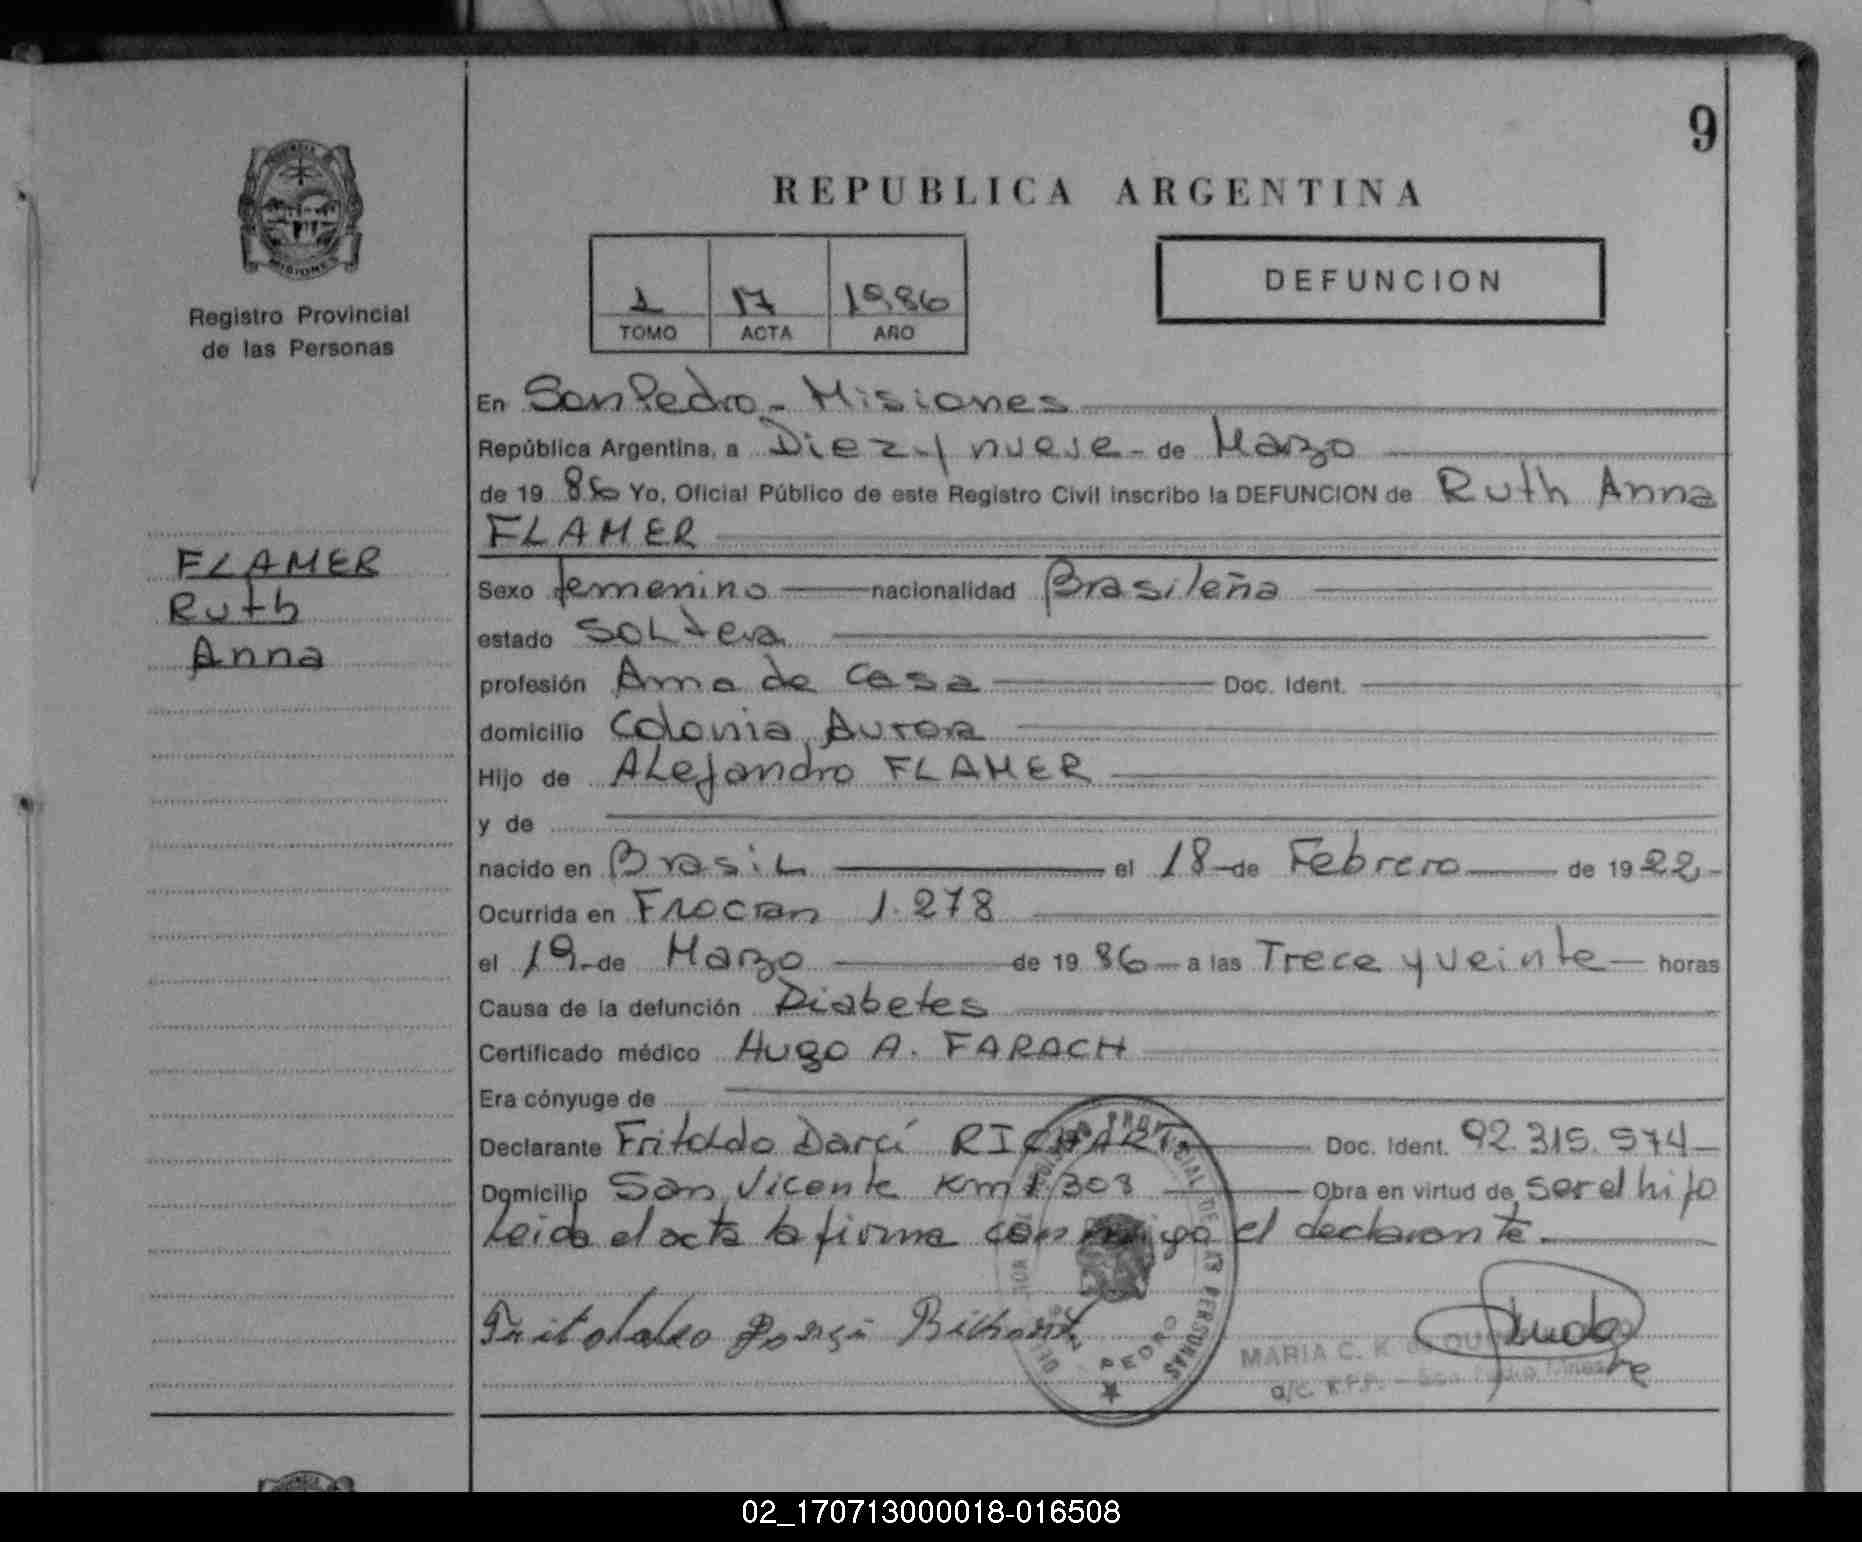 9
REPUBLICA ARGENTINA
1 17 1986
TOMO ACTA AÑO
DEFUNCION
Registro Provincial
de las Personas
FLAMER
Ruth
Anna
En San Pedro - Misiones
República Argentina, a Diez y nueve - de Marzo
de 19 86 Yo, Oficial Público de este Registro Civil inscribo la DEFUNCION de Ruth Anna
FLAMER
Sexo femenino nacionalidad Brasileña
estado SoLtera
profesión Ama de casa Doc. Ident.
domicilio Colonia Aurora
Hijo de ALejandro FLAMER
y de
nacido en BrasiL el 18 de Febrero de 19 22
Ocurrida en Fracran 1.278
el 19 de Marzo de 19 86 a las Trece y veinte horas
Causa de la defunción Diabetes
Certificado médico Hugo A. FARACH
Era cónyuge de
Declarante Fritoldo Darci RICHART Doc. Ident. 92.315.574
Domicilio San Vicente Km 1.308 Obra en virtud de ser el hijo
Leida el acta la firma conmigo el declarante.
Fritoldo Darci Richart
PROVINCIAL DE LAS PERSONAS
PEDRO
MARIA C. K. de
a/c. R.P.P. - San Pedro Mnes
02_170713000018-016508